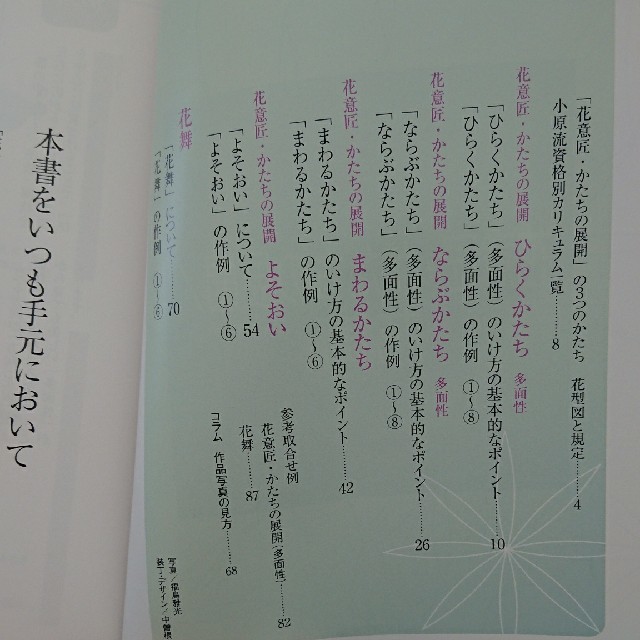 「花意匠・かたちの展開」の３つのかたち　花型図と規定………4
小原流資格別カリキュラム一覧………8
花意匠・かたちの展開　ひらくかたち　多面性
「ひらくかたち」（多面性）のいけ方の基本的なポイント………10
「ひらくかたち」（多面性）の作例　①〜⑧
花意匠・かたちの展開　ならぶかたち　多面性
「ならぶかたち」（多面性）のいけ方の基本的なポイント………26
「ならぶかたち」（多面性）の作例　①〜⑧
花意匠・かたちの展開　まわるかたち
「まわるかたち」のいけ方の基本的なポイント………42
「まわるかたち」の作例　①〜⑥
花意匠・かたちの展開　よそおい
「よそおい」について………54
「よそおい」の作例　①〜⑥
花舞
「花舞」について………70
「花舞」の作例　①〜⑥
参考取合せ例
花意匠・かたちの展開（多面性）………82
花舞………87
コラム　作品写真の見方………68
写真／福島雅光
装丁・デザイン／中曽根
本書をいつも手元において